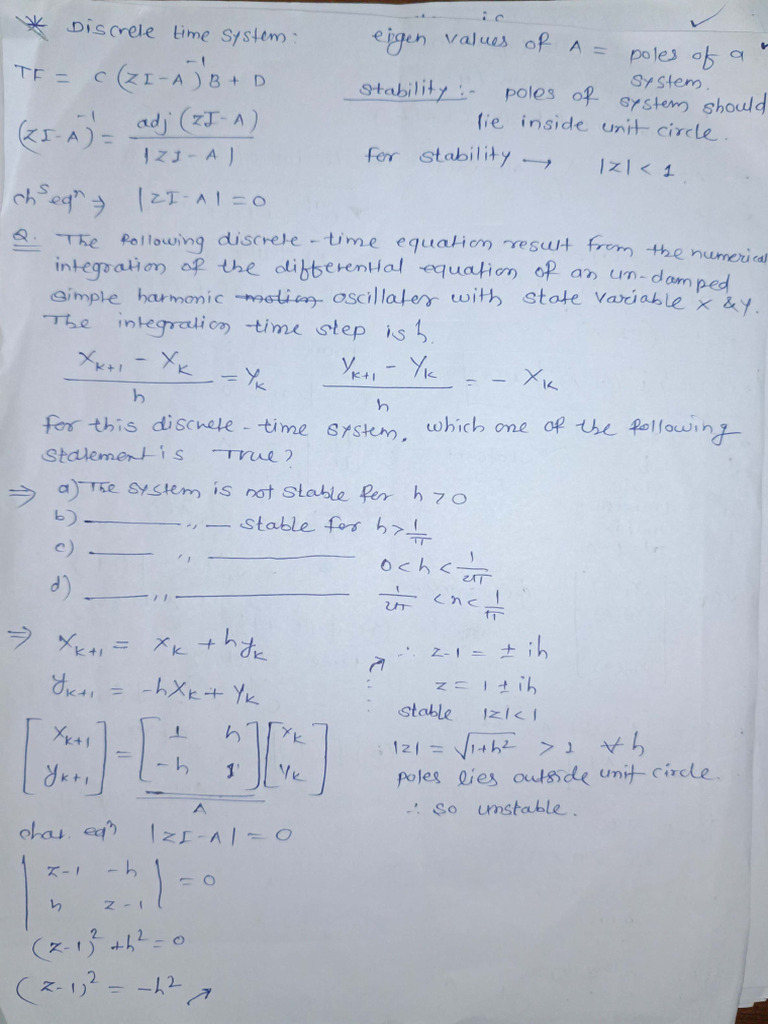 * Discrete time system:
TF = C (ZI-A)^-1 B + D
(ZI-A)^-1 = adj (ZI-A) / |ZI-A|
ch^s eq^n ⇒ |ZI-A| = 0
eigen values of A = poles of a
system.
stability :- poles of system should
lie inside unit circle.
for stability → |z| < 1.
Q. The following discrete-time equation result from the numerical
integration of the differential equation of an un-damped
simple harmonic motion oscillater with state variable x & y.
The integration time step is h.
(X_{K+1} - X_K) / h = Y_K    (Y_{K+1} - Y_K) / h = - X_K
for this discrete-time system, which one of the following
statement is True?
⇒ a) The system is not stable for h > 0
b) ———— ,, — stable for h > 1/π
c) ——— ,, ———— 0 < h < 1/2π
d) ——— ,, ———— 1/2π < h < 1/π
⇒ X_{K+1} = X_K + h y_K
y_{K+1} = -h X_K + Y_K
[X_{K+1} y_{K+1}] = [1 h -h 1] [X_K Y_K]
A
char. eq^n |ZI-A| = 0
|z-1 -h h z-1| = 0
(z-1)^2 + h^2 = 0
(z-1)^2 = -h^2 ↗
↗ ∴ z-1 = ± ih
z = 1 ± ih
stable |z| < 1
|z| = √(1+h^2) > 1 ∀ h
poles lies outside unit circle.
∴ so unstable.